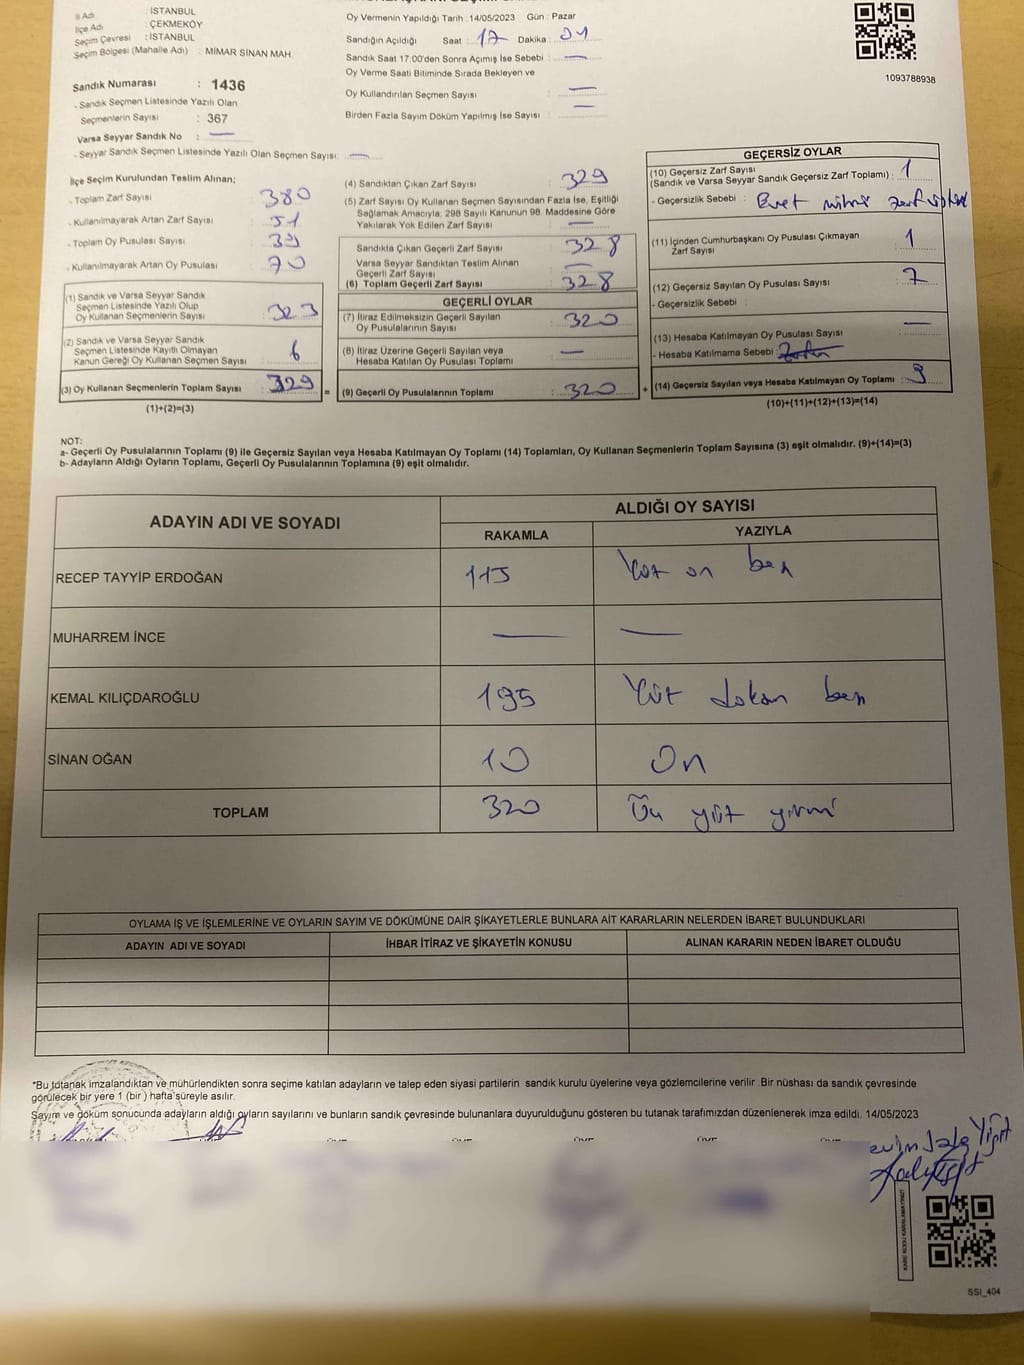 İli Adı : İSTANBUL
İlçe Adı : ÇEKMEKÖY
Seçim Çevresi : İSTANBUL
Seçim Bölgesi (Mahalle Adı) : MİMAR SİNAN MAH.
Sandık Numarası : 1436
- Sandık Seçmen Listesinde Yazılı Olan
Seçmenlerin Sayısı : 367
Varsa Seyyar Sandık No : —
- Seyyar Sandık Seçmen Listesinde Yazılı Olan Seçmen Sayısı : —
Oy Vermenin Yapıldığı Tarih : 14/05/2023 Gün : Pazar
Sandığın Açıldığı Saat : 17 Dakika : 01
Sandık Saat 17:00'den Sonra Açımış İse Sebebi : —
Oy Verme Saati Bitiminde Sırada Bekleyen ve
Oy Kullandırılan Seçmen Sayısı : —
Birden Fazla Sayım Döküm Yapılmış İse Sayısı : —
1093788938
İlçe Seçim Kurulundan Teslim Alınan;
- Toplam Zarf Sayısı : 380
- Kullanılmayarak Artan Zarf Sayısı : 51
- Toplam Oy Pusulası Sayısı
- Kullanılmayarak Artan Oy Pusulası : 70
(1) Sandık ve Varsa Seyyar Sandık
Seçmen Listesinde Yazılı Olup
Oy Kullanan Seçmenlerin Sayısı : 323
(2) Sandık ve Varsa Seyyar Sandık
Seçmen Listesinde Kayıtlı Olmayan
Kanun Gereği Oy Kullanan Seçmen Sayısı : 6
(3) Oy Kullanan Seçmenlerin Toplam Sayısı : 329
(1)+(2)=(3)
(4) Sandıktan Çıkan Zarf Sayısı : 329
(5) Zarf Sayısı Oy Kullanan Seçmen Sayısından Fazla İse, Eşitliği
Sağlamak Amacıyla, 298 Sayılı Kanunun 98. Maddesine Göre
Yakılarak Yok Edilen Zarf Sayısı : —
Sandıkta Çıkan Geçerli Zarf Sayısı : 328
Varsa Seyyar Sandıktan Teslim Alınan
Geçerli Zarf Sayısı : —
(6) Toplam Geçerli Zarf Sayısı : 328
GEÇERLİ OYLAR
(7) İtiraz Edilmeksizin Geçerli Sayılan
Oy Pusulalarının Sayısı : 320
(8) İtiraz Üzerine Geçerli Sayılan veya
Hesaba Katılan Oy Pusulaları Toplamı : —
= (9) Geçerli Oy Pusulalarının Toplamı : 320 +
GEÇERSİZ OYLAR
(10) Geçersiz Zarf Sayısı
(Sandık ve Varsa Seyyar Sandık Geçersiz Zarf Toplamı) : 1
- Geçersizlik Sebebi : Evet mührü
(11) İçinden Cumhurbaşkanı Oy Pusulası Çıkmayan
Zarf Sayısı : 1
(12) Geçersiz Sayılan Oy Pusulası Sayısı : 7
- Geçersizlik Sebebi :
(13) Hesaba Katılmayan Oy Pusulası Sayısı : —
- Hesaba Katılmama Sebebi :
(14) Geçersiz Sayılan veya Hesaba Katılmayan Oy Toplamı : 9
(10)+(11)+(12)+(13)=(14)
NOT:
a- Geçerli Oy Pusulalarının Toplamı (9) ile Geçersiz Sayılan veya Hesaba Katılmayan Oy Toplamı (14) Toplamları, Oy Kullanan Seçmenlerin Toplam Sayısına (3) eşit olmalıdır. (9)+(14)=(3)
b- Adayların Aldığı Oyların Toplamı, Geçerli Oy Pusulalarının Toplamına (9) eşit olmalıdır.
ADAYIN ADI VE SOYADI ALDIĞI OY SAYISI
RAKAMLA YAZIYLA
RECEP TAYYİP ERDOĞAN 115 Yüz on beş
MUHARREM İNCE — —
KEMAL KILIÇDAROĞLU 195 Yüz doksan beş
SİNAN OĞAN 10 On
TOPLAM 320 Üç yüz yirmi
OYLAMA İŞ VE İŞLEMLERİNE VE OYLARIN SAYIM VE DÖKÜMÜNE DAİR ŞİKAYETLERLE BUNLARA AİT KARARLARIN NELERDEN İBARET BULUNDUKLARI
ADAYIN ADI VE SOYADI İHBAR İTİRAZ VE ŞİKAYETİN KONUSU ALINAN KARARIN NEDEN İBARET OLDUĞU
*Bu tutanak imzalandıktan ve mühürlendikten sonra seçime katılan adayların ve talep eden siyasi partilerin sandık kurulu üyelerine veya gözlemcilerine verilir .Bir nüshası da sandık çevresinde
görülecek bir yere 1 (bir ) hafta süreyle asılır.
Sayım ve döküm sonucunda adayların aldığı oyların sayılarını ve bunların sandık çevresinde bulunanlara duyurulduğunu gösteren bu tutanak tarafımızdan düzenlenerek imza edildi. 14/05/2023
KARE KODU KARALAMAYINIZ!
SSI_404